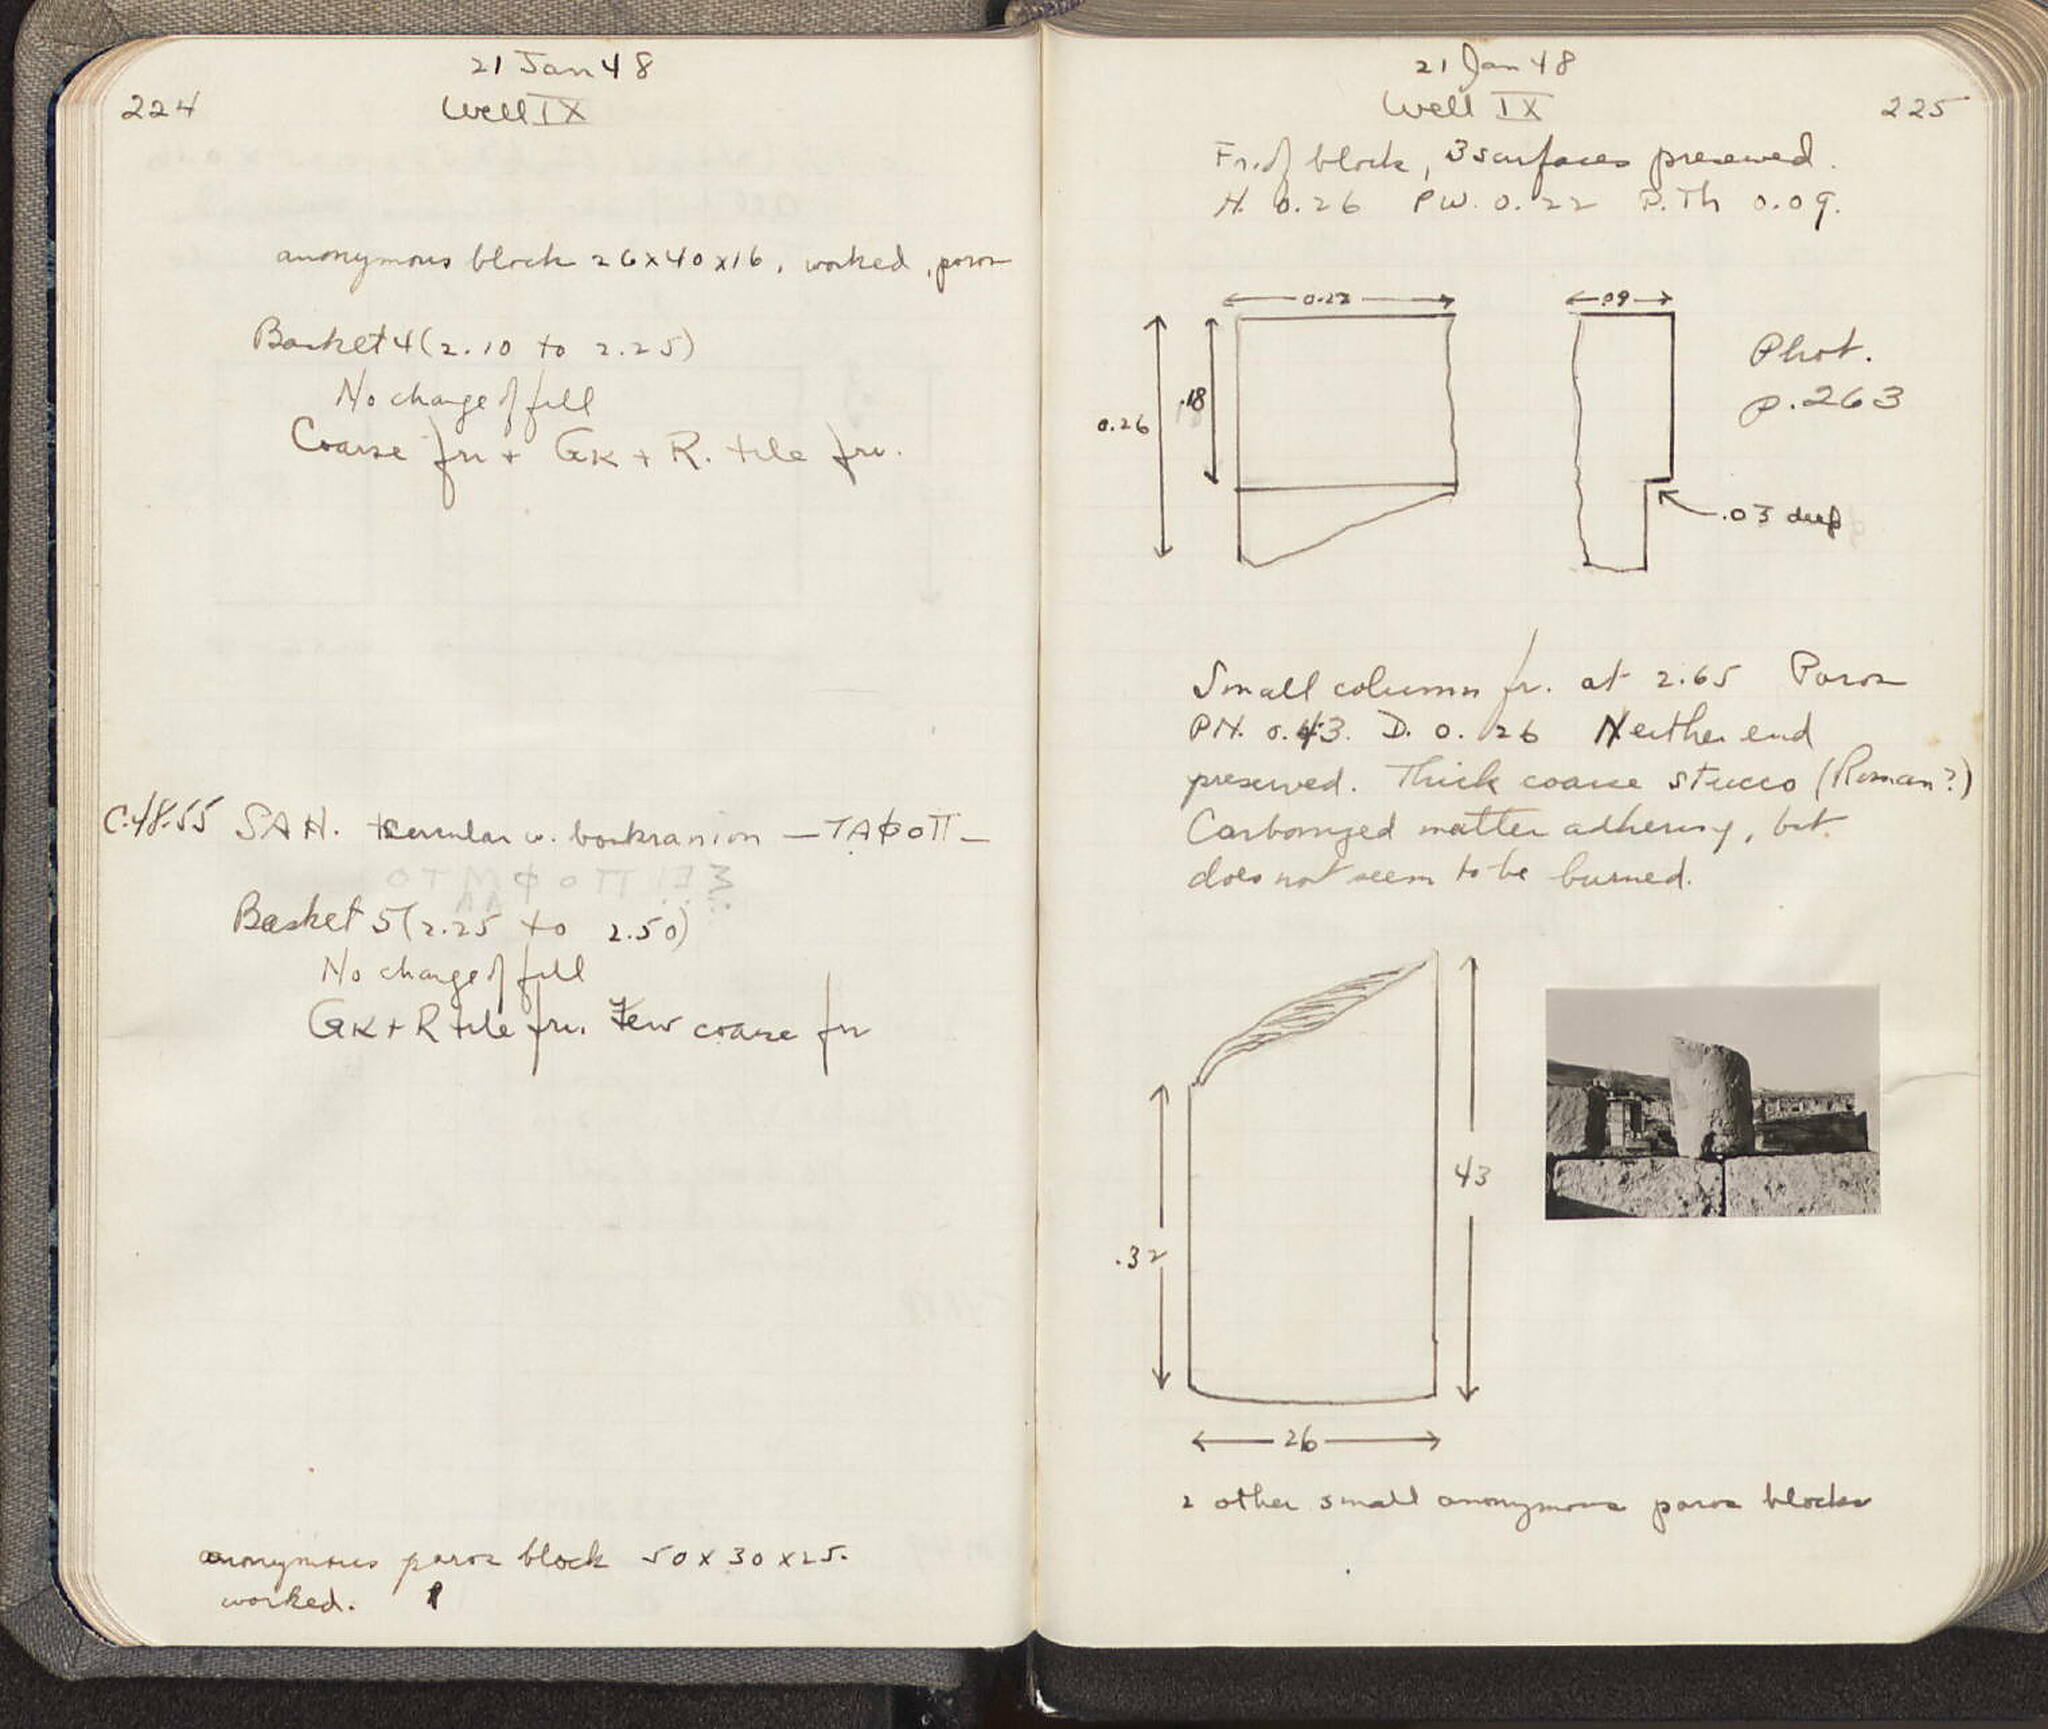 21 Jan 48
224
Well IX
anonymous block 26x40x16, worked, poros
Basket 4 (2.10 to 2.25)
No change of fill
Coarse frr + GK + R. tile frr.
C.48.55 SAH. circular w. boukranion — ΤΑΦΟΠ —
Basket 5 (2.25 to 2.50)
No change of fill
GK + R tile frr. Few coarse frr
anonymous poros block 50 x 30 x 25.
worked.
21 Jan 48
Well IX
225
Fr. of block, 3 surfaces preserved.
H. 0.26 PW. 0.22 P.Th 0.09.
0.22
.09
Phot.
p.263
.18
0.26
.03 deep
Small column fr. at 2.65 Poros
PH. 0.43. D. 0.26 Neither end
preserved. Thick coarse stucco (Roman?)
Carbonized matter adhering, but
does not seem to be burned.
43
.32
26
2 other small anonymous poros blocks